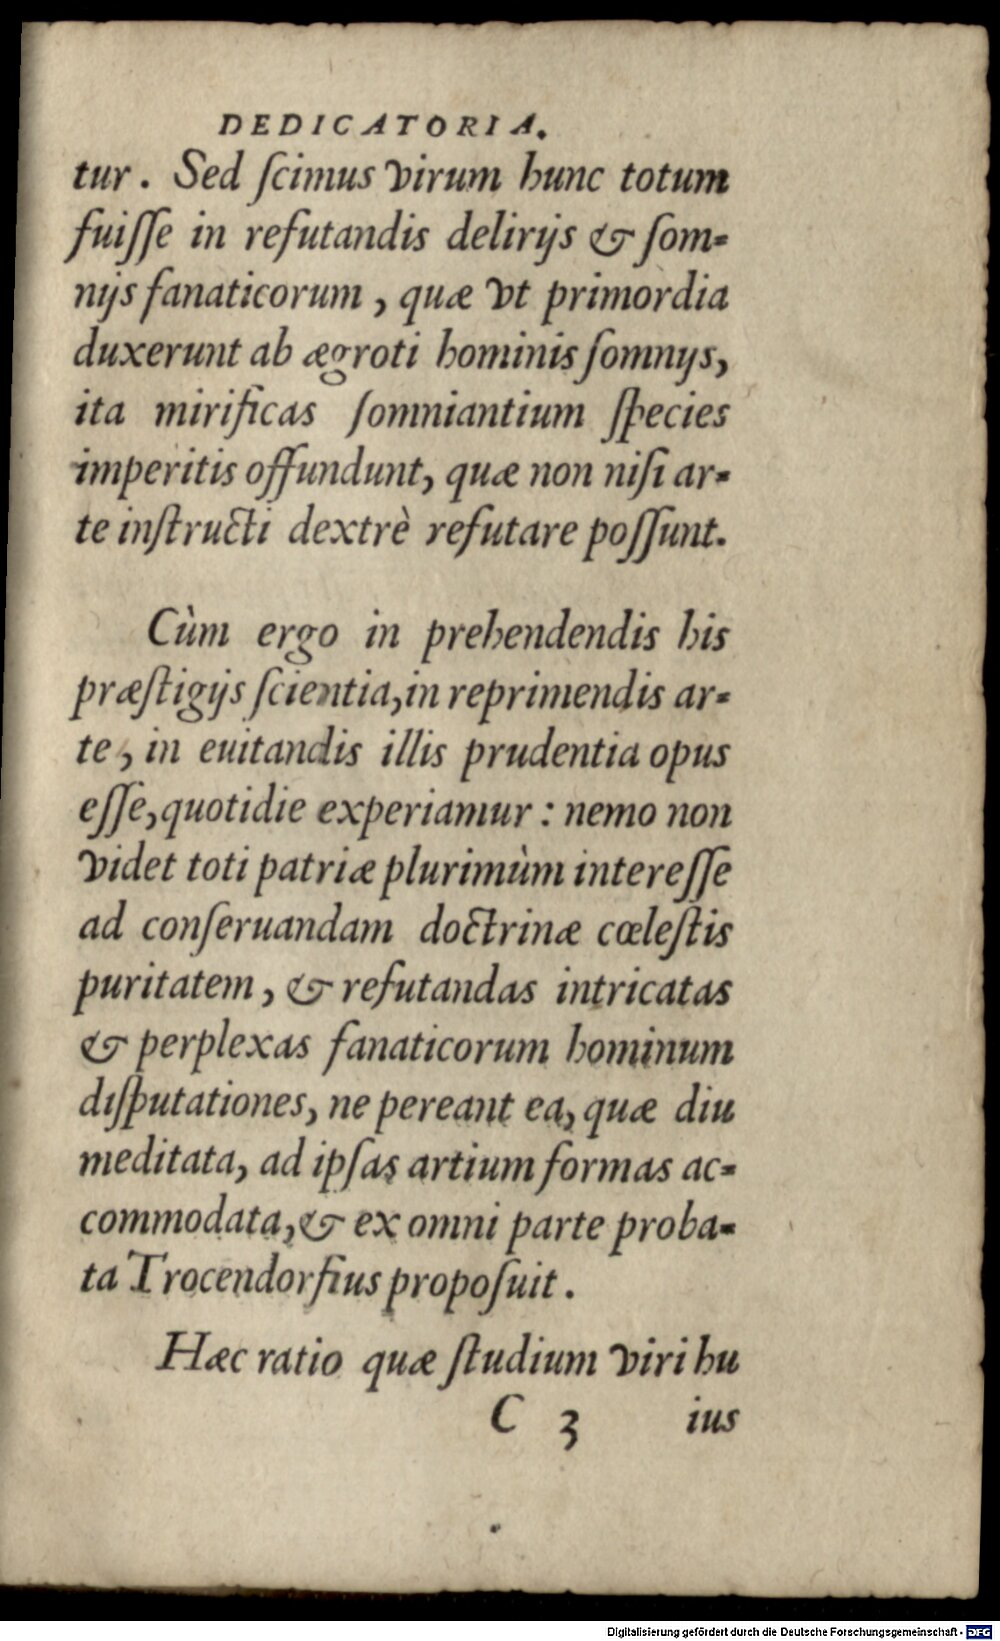 DEDICATORIA.
tur. Sed ſcimus virum hunc totum
fuiſſe in refutandis delirijs & ſom-
nijs fanaticorum, quæ vt primordia
duxerunt ab ægroti hominis ſomnijs,
ita mirificas ſomniantium ſpecies
imperitis offundunt, quæ non niſi ar-
te inſtructi dextrè refutare poſſunt.
Cùm ergo in prehendendis his
præſtigijs ſcientia, in reprimendis ar-
te, in euitandis illis prudentia opus
eſſe, quotidie experiamur: nemo non
videt toti patriæ plurimùm intereſſe
ad conſeruandam doctrinæ cœleſtis
puritatem, & refutandas intricatas
& perplexas fanaticorum hominum
diſputationes, ne pereant ea, quæ diu
meditata, ad ipſas artium formas ac-
commodata, & ex omni parte proba-
ta Trocendorfius propoſuit.
Hæc ratio quæ ſtudium viri hu
C 3 ius
Digitalisierung gefördert durch die Deutsche Forschungsgemeinschaft - DFG